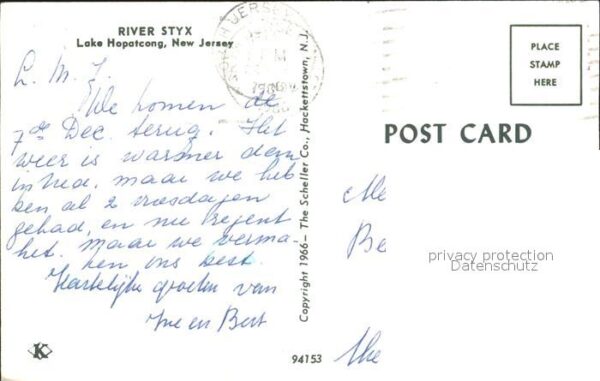 RIVER STYX
Lake Hopatcong, New Jersey
L. M. J.
We komen de
7de Dec. terug. Het
weer is warmer dan
in Ned. maar we heb
ben al 2 vriesdagen
gehad, en nu regent
het. Maar we verma-
ken ons best.
Hartelijke groeten van
en Bert
K
94153
Copyright 1966 — The Scheller Co., Hackettstown, N.J.
JERSEY
PM
PLACE
STAMP
HERE
POST CARD
Me
Be
privacy protection
Datenschutz
The